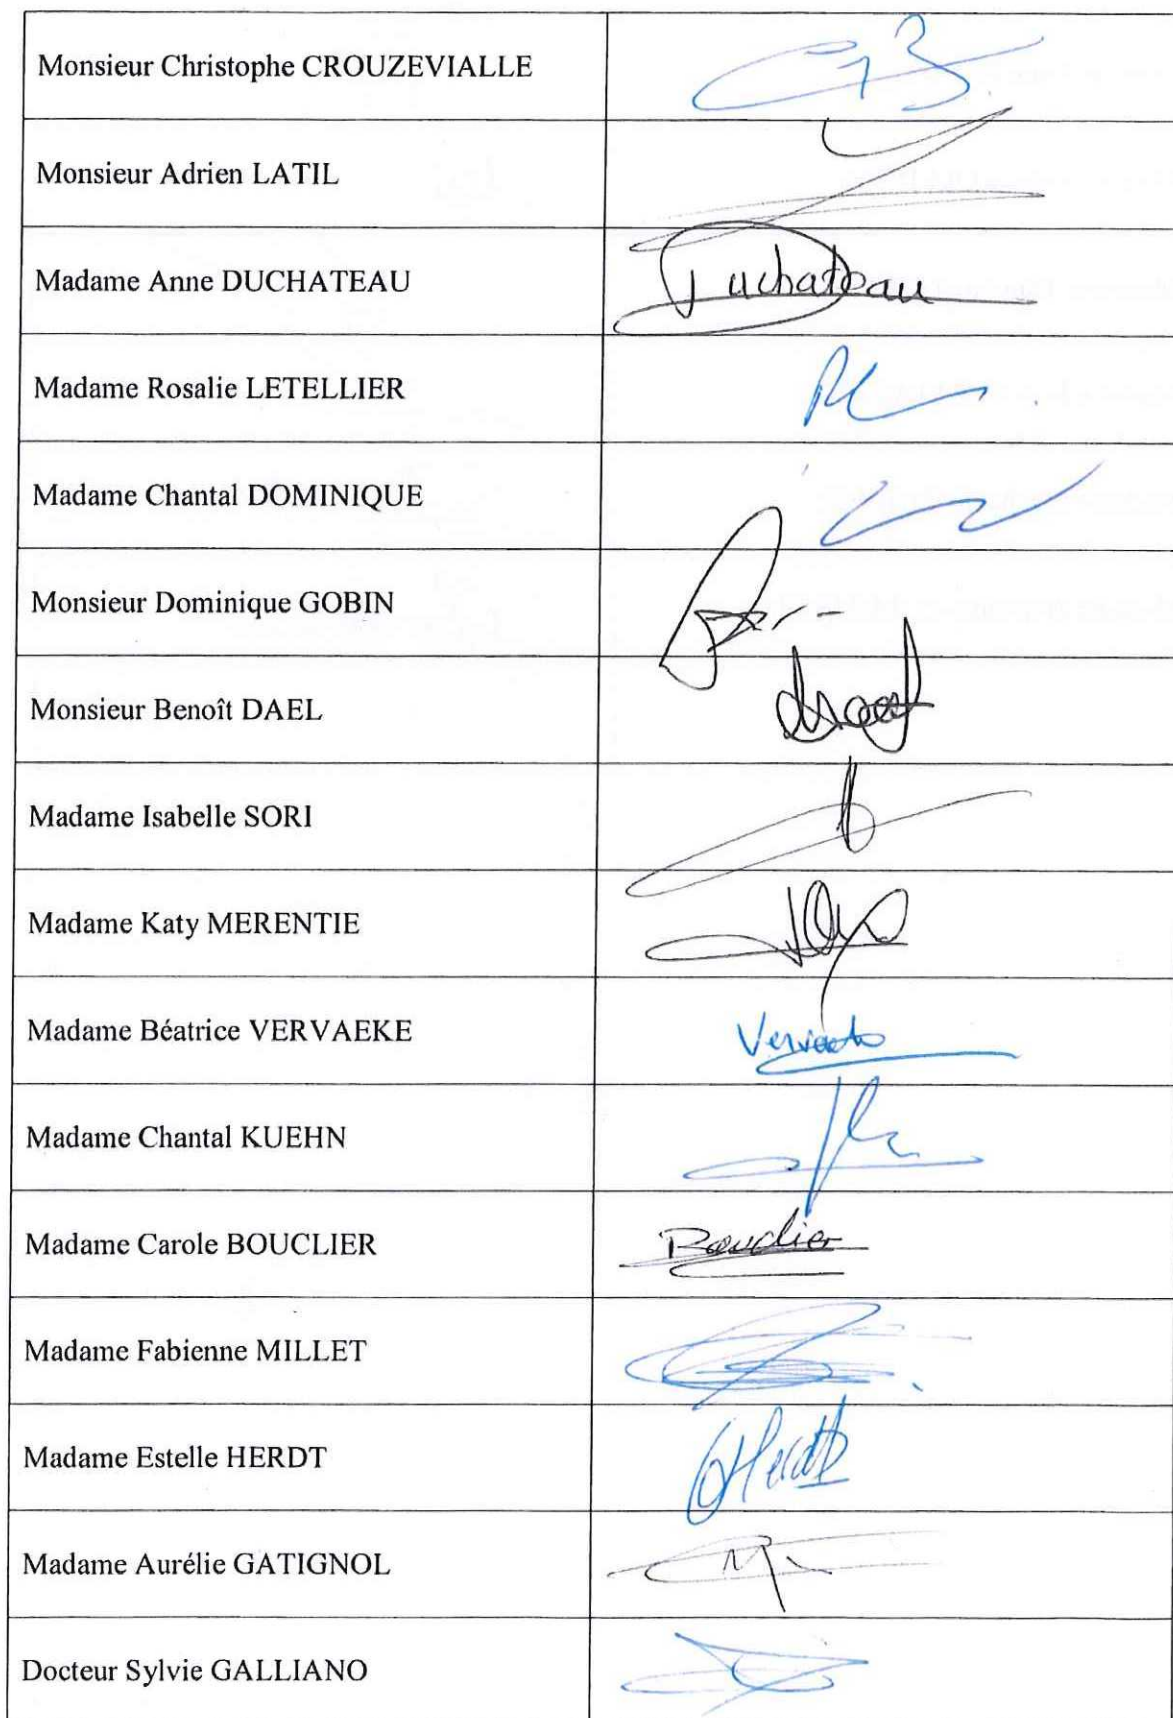 Monsieur Christophe CROUZEVIALLE
Monsieur Adrien LATIL
Madame Anne DUCHATEAU Duchateau
Madame Rosalie LETELLIER
Madame Chantal DOMINIQUE
Monsieur Dominique GOBIN
Monsieur Benoît DAEL
Madame Isabelle SORI
Madame Katy MERENTIE
Madame Béatrice VERVAEKE
Madame Chantal KUEHN
Madame Carole BOUCLIER Bouclier
Madame Fabienne MILLET
Madame Estelle HERDT Herdt
Madame Aurélie GATIGNOL
Docteur Sylvie GALLIANO